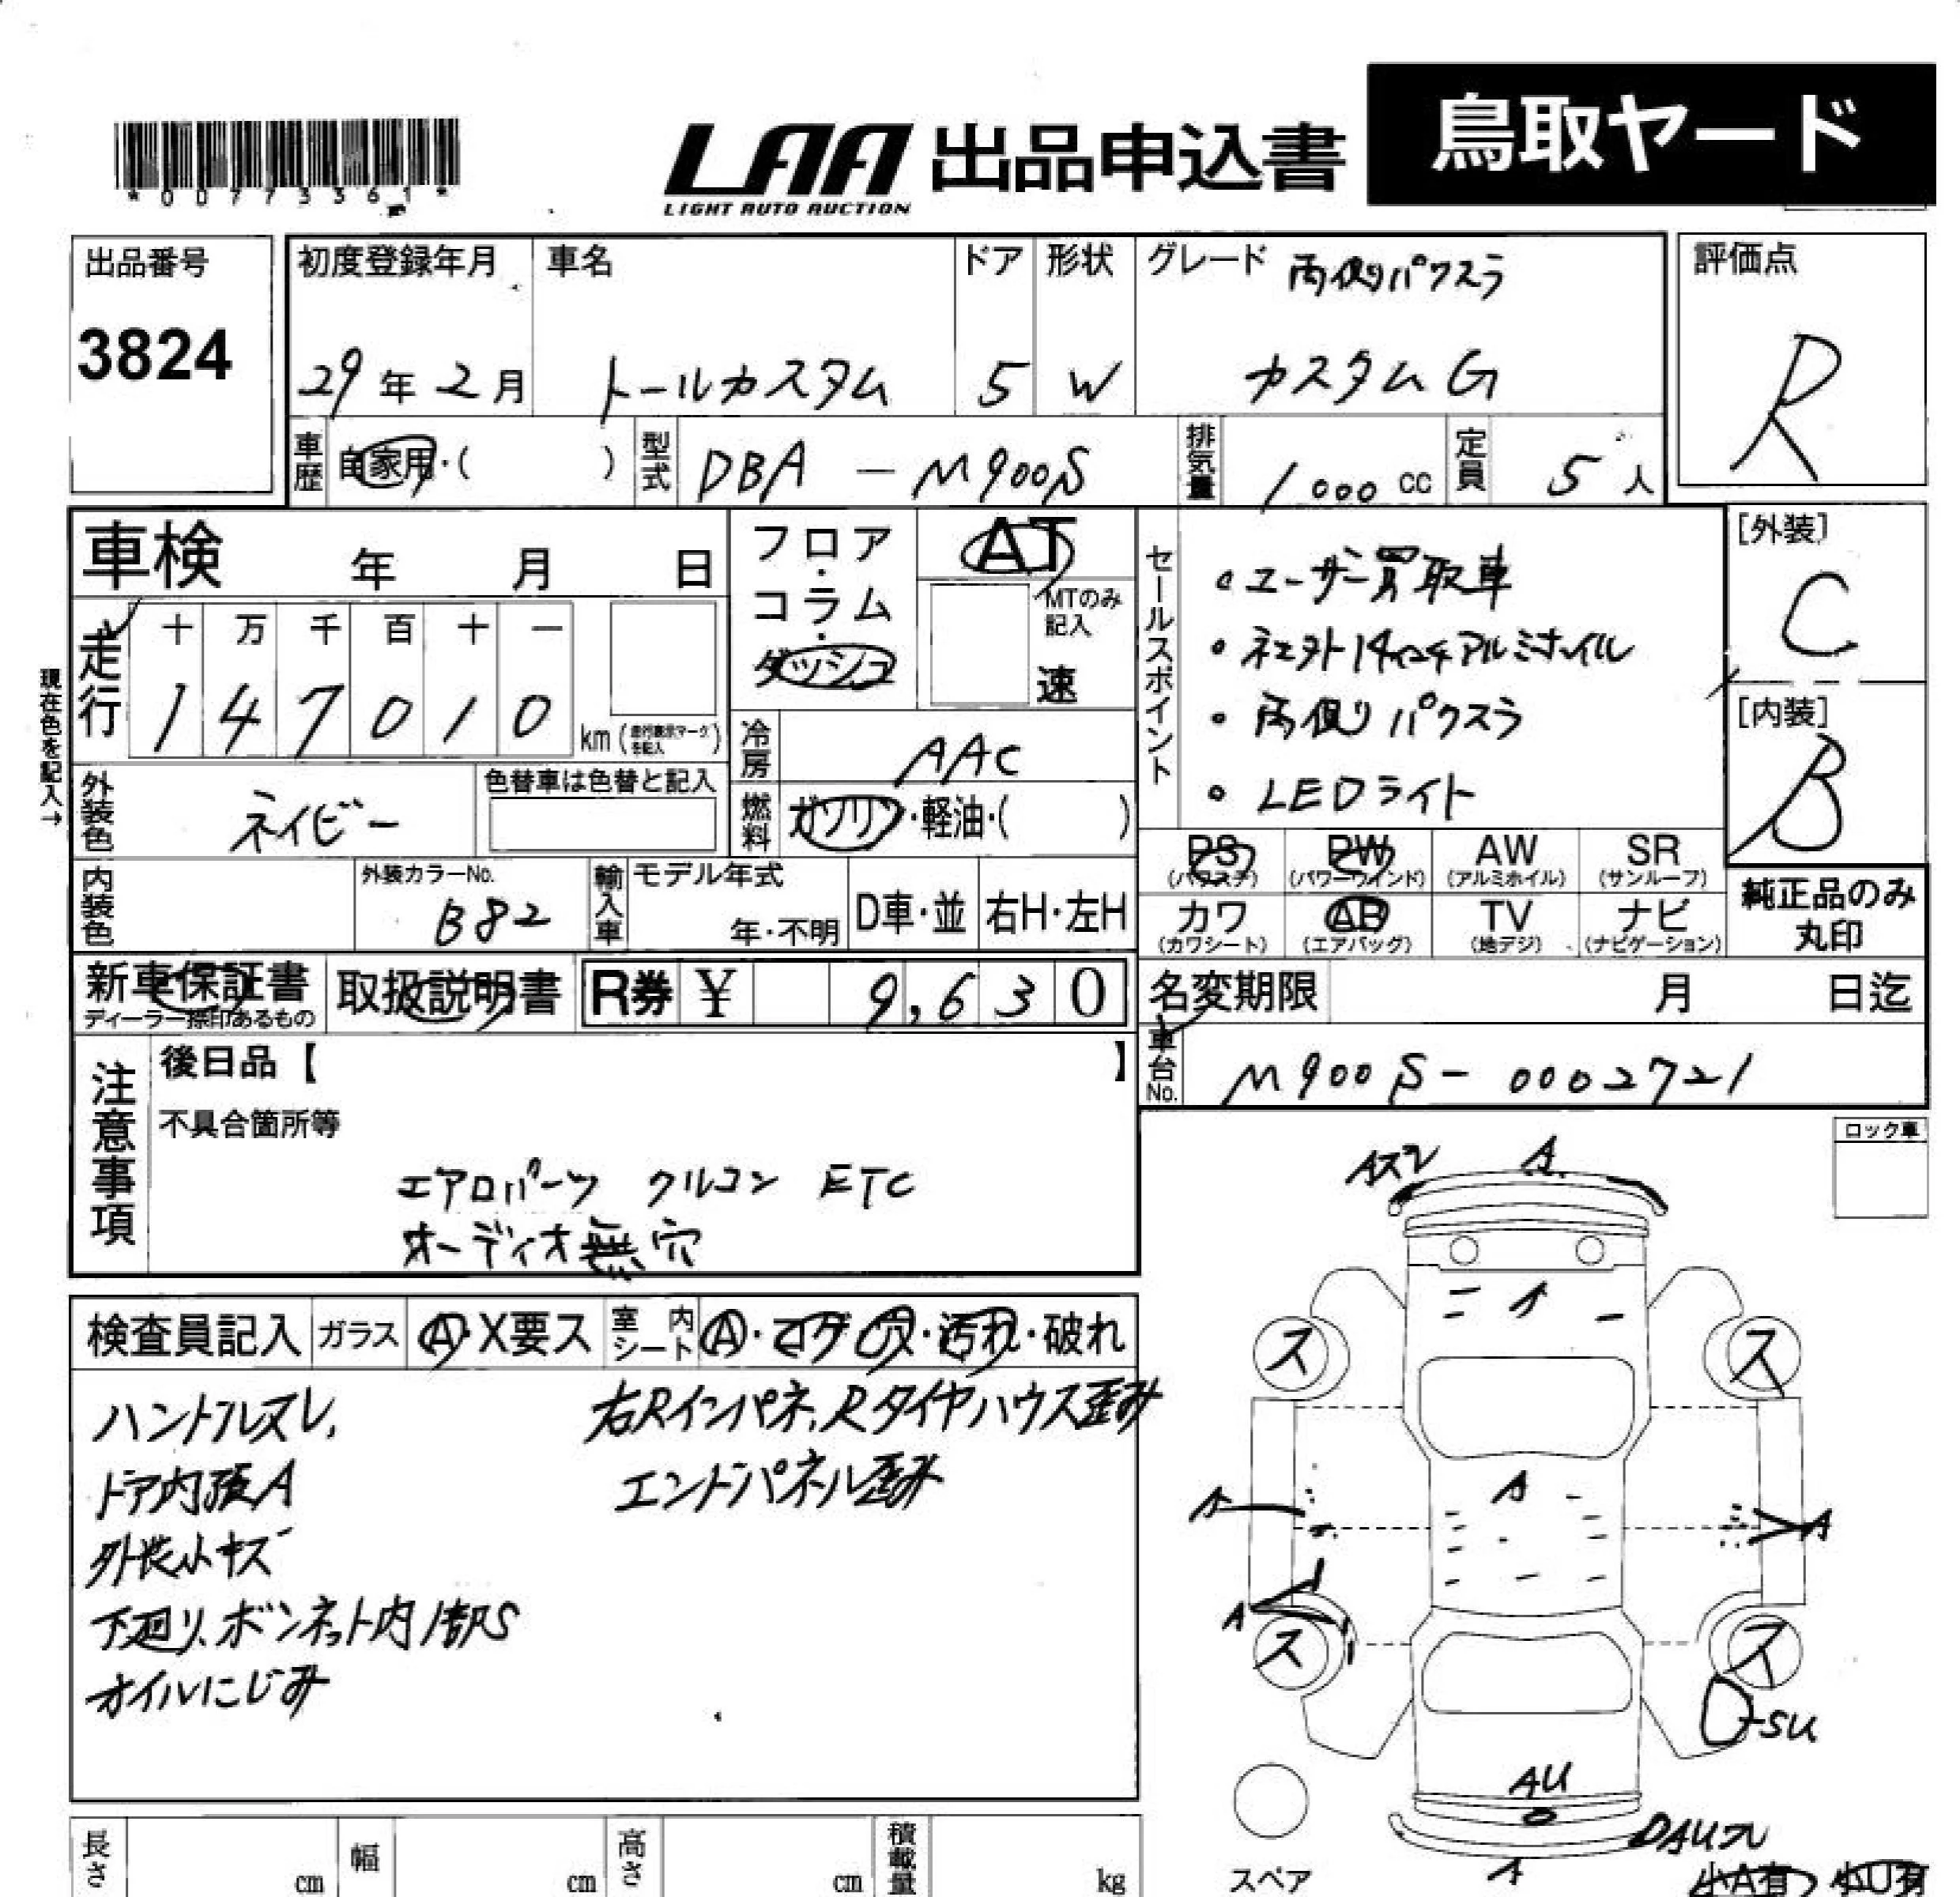 鳥取ヤード
LAA 出品申込書
LIGHT AUTO AUCTION
*00773361*
出品番号
3824
初度登録年月
29年2月
車名
トールカスタム
ドア
5
形状
W
グレード 両側パワスラ
カスタムG
評価点
R
車歴 自家用・( )
型式 DBA - M900S
排気量 1000cc
定員 5人
車検 年 月 日
フロア・コラム・ダッシュ
AT
MTのみ記入
速
セールスポイント
・ユーザー買取車
・社外14インチアルミホイル
・両側パワスラ
・LEDライト
[外装]
C
[内装]
B
現在色を記入→
走行
十 万 千 百 十 一
1 4 7 0 1 0 km(走行表示マークを記入)
冷房 AAC
外装色 ネイビー
色替車は色替と記入
燃料 ガソリン・軽油・( )
PS (パワステ)
PW (パワーウインド)
AW (アルミホイル)
SR (サンルーフ)
カワ (カワシート)
AB (エアバッグ)
TV (地デジ)
ナビ (ナビゲーション)
純正品のみ丸印
内装色
外装カラーNo.
B82
輸入車
モデル年式
年・不明
D車・並
右H・左H
新車保証書
ディーラー捺印あるもの
取扱説明書
R券 ¥ 9,630
名変期限 月 日迄
車台No. M900S-0002721
注意事項
後日品【 】
不具合箇所等
エアロパーツ クルコン ETC
オーディオ無 穴
ロック車
検査員記入
ガラス A・X要ス
室内シート A・コゲ穴・汚れ・破れ
ハンドルスレ、
ドア内張A
外装小キズ
下廻り、ボンネット内1部S
オイルにじみ
右Rインパネ、Rタイヤハウス歪み
エンドパネル歪み
Aスレ
A
A
ス
ス
A
A
A
A
ス
ス
SU
AU
DAUスレ
A
スペア
小A有 小U有
長さ cm
幅 cm
高さ cm
積載量 kg